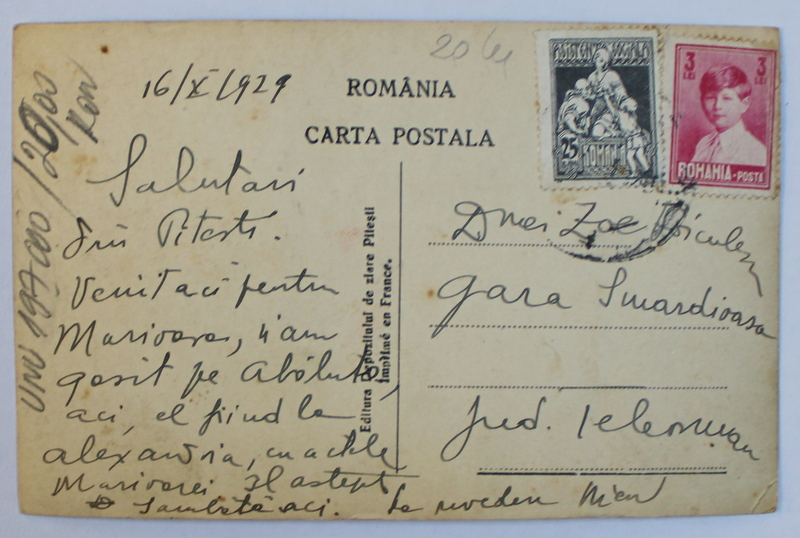 20 lei
16/X/929
ROMÂNIA
CARTA POSTALA
ASISTENȚA SOCIALA
25
ROMANIA
3 3
LEI LEI
ROMANIA-POSTA
Salutari
din Pitesti.
Venit aci pentru
Marioara, n'am
gasit pe
aci, el fiind la
alexandria, cu actele
Marioarei Il astept
Sambătă aci. La revedere
Editura Depozitului de ziare Piteşti
Imprimé en France.
Dnei Zoe Niculescu
gara Smardioasa
Jud. Teleorman